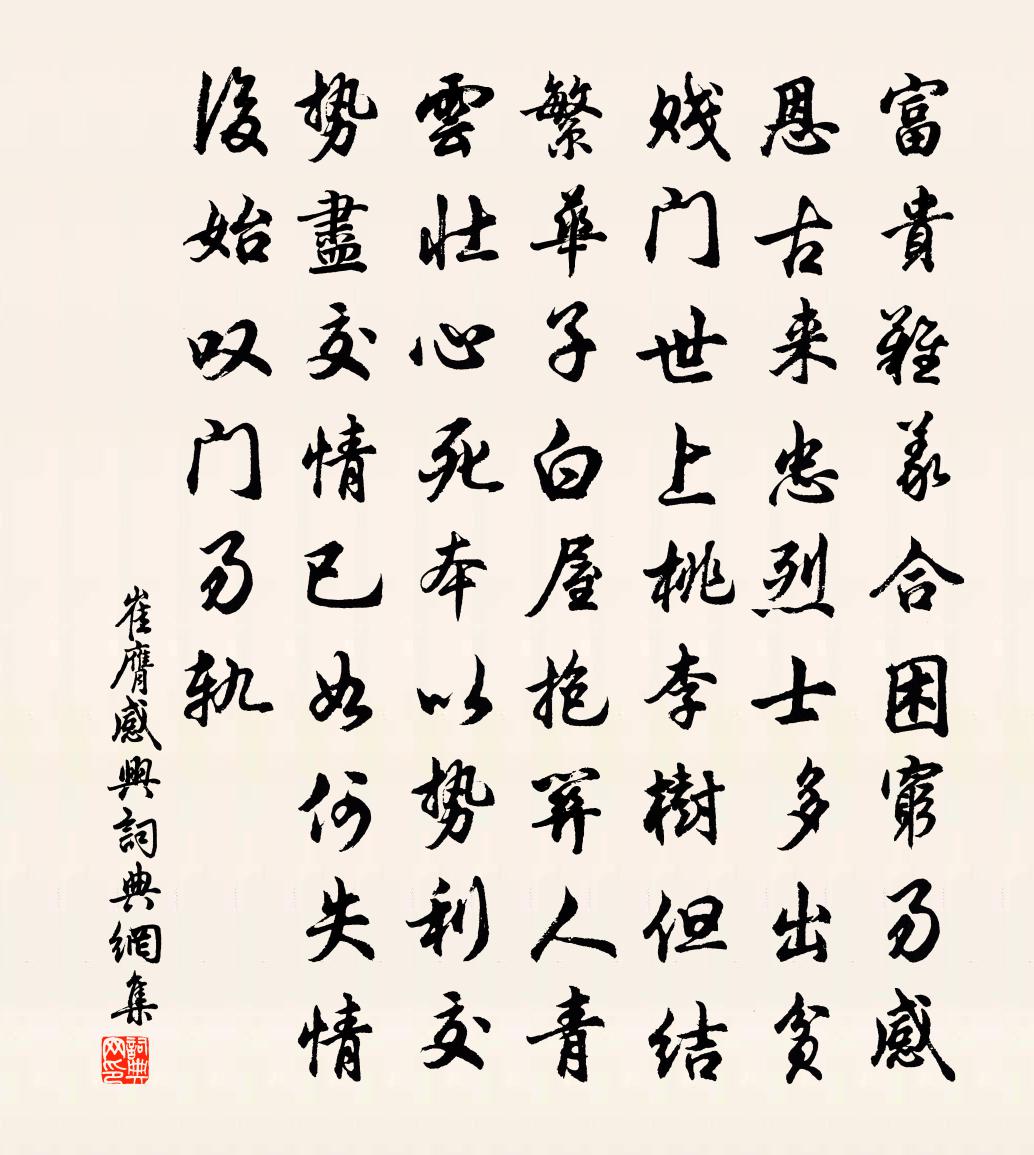 富貴難義合困窮易感
恩古来忠烈士多出貧
贱门世上桃李樹但结
繁華子白屋抱關人青
雲壮心死本以势利交
势盡交情已如何失情
後始叹门易軌
崔膺感興詞典網集
詞典网印